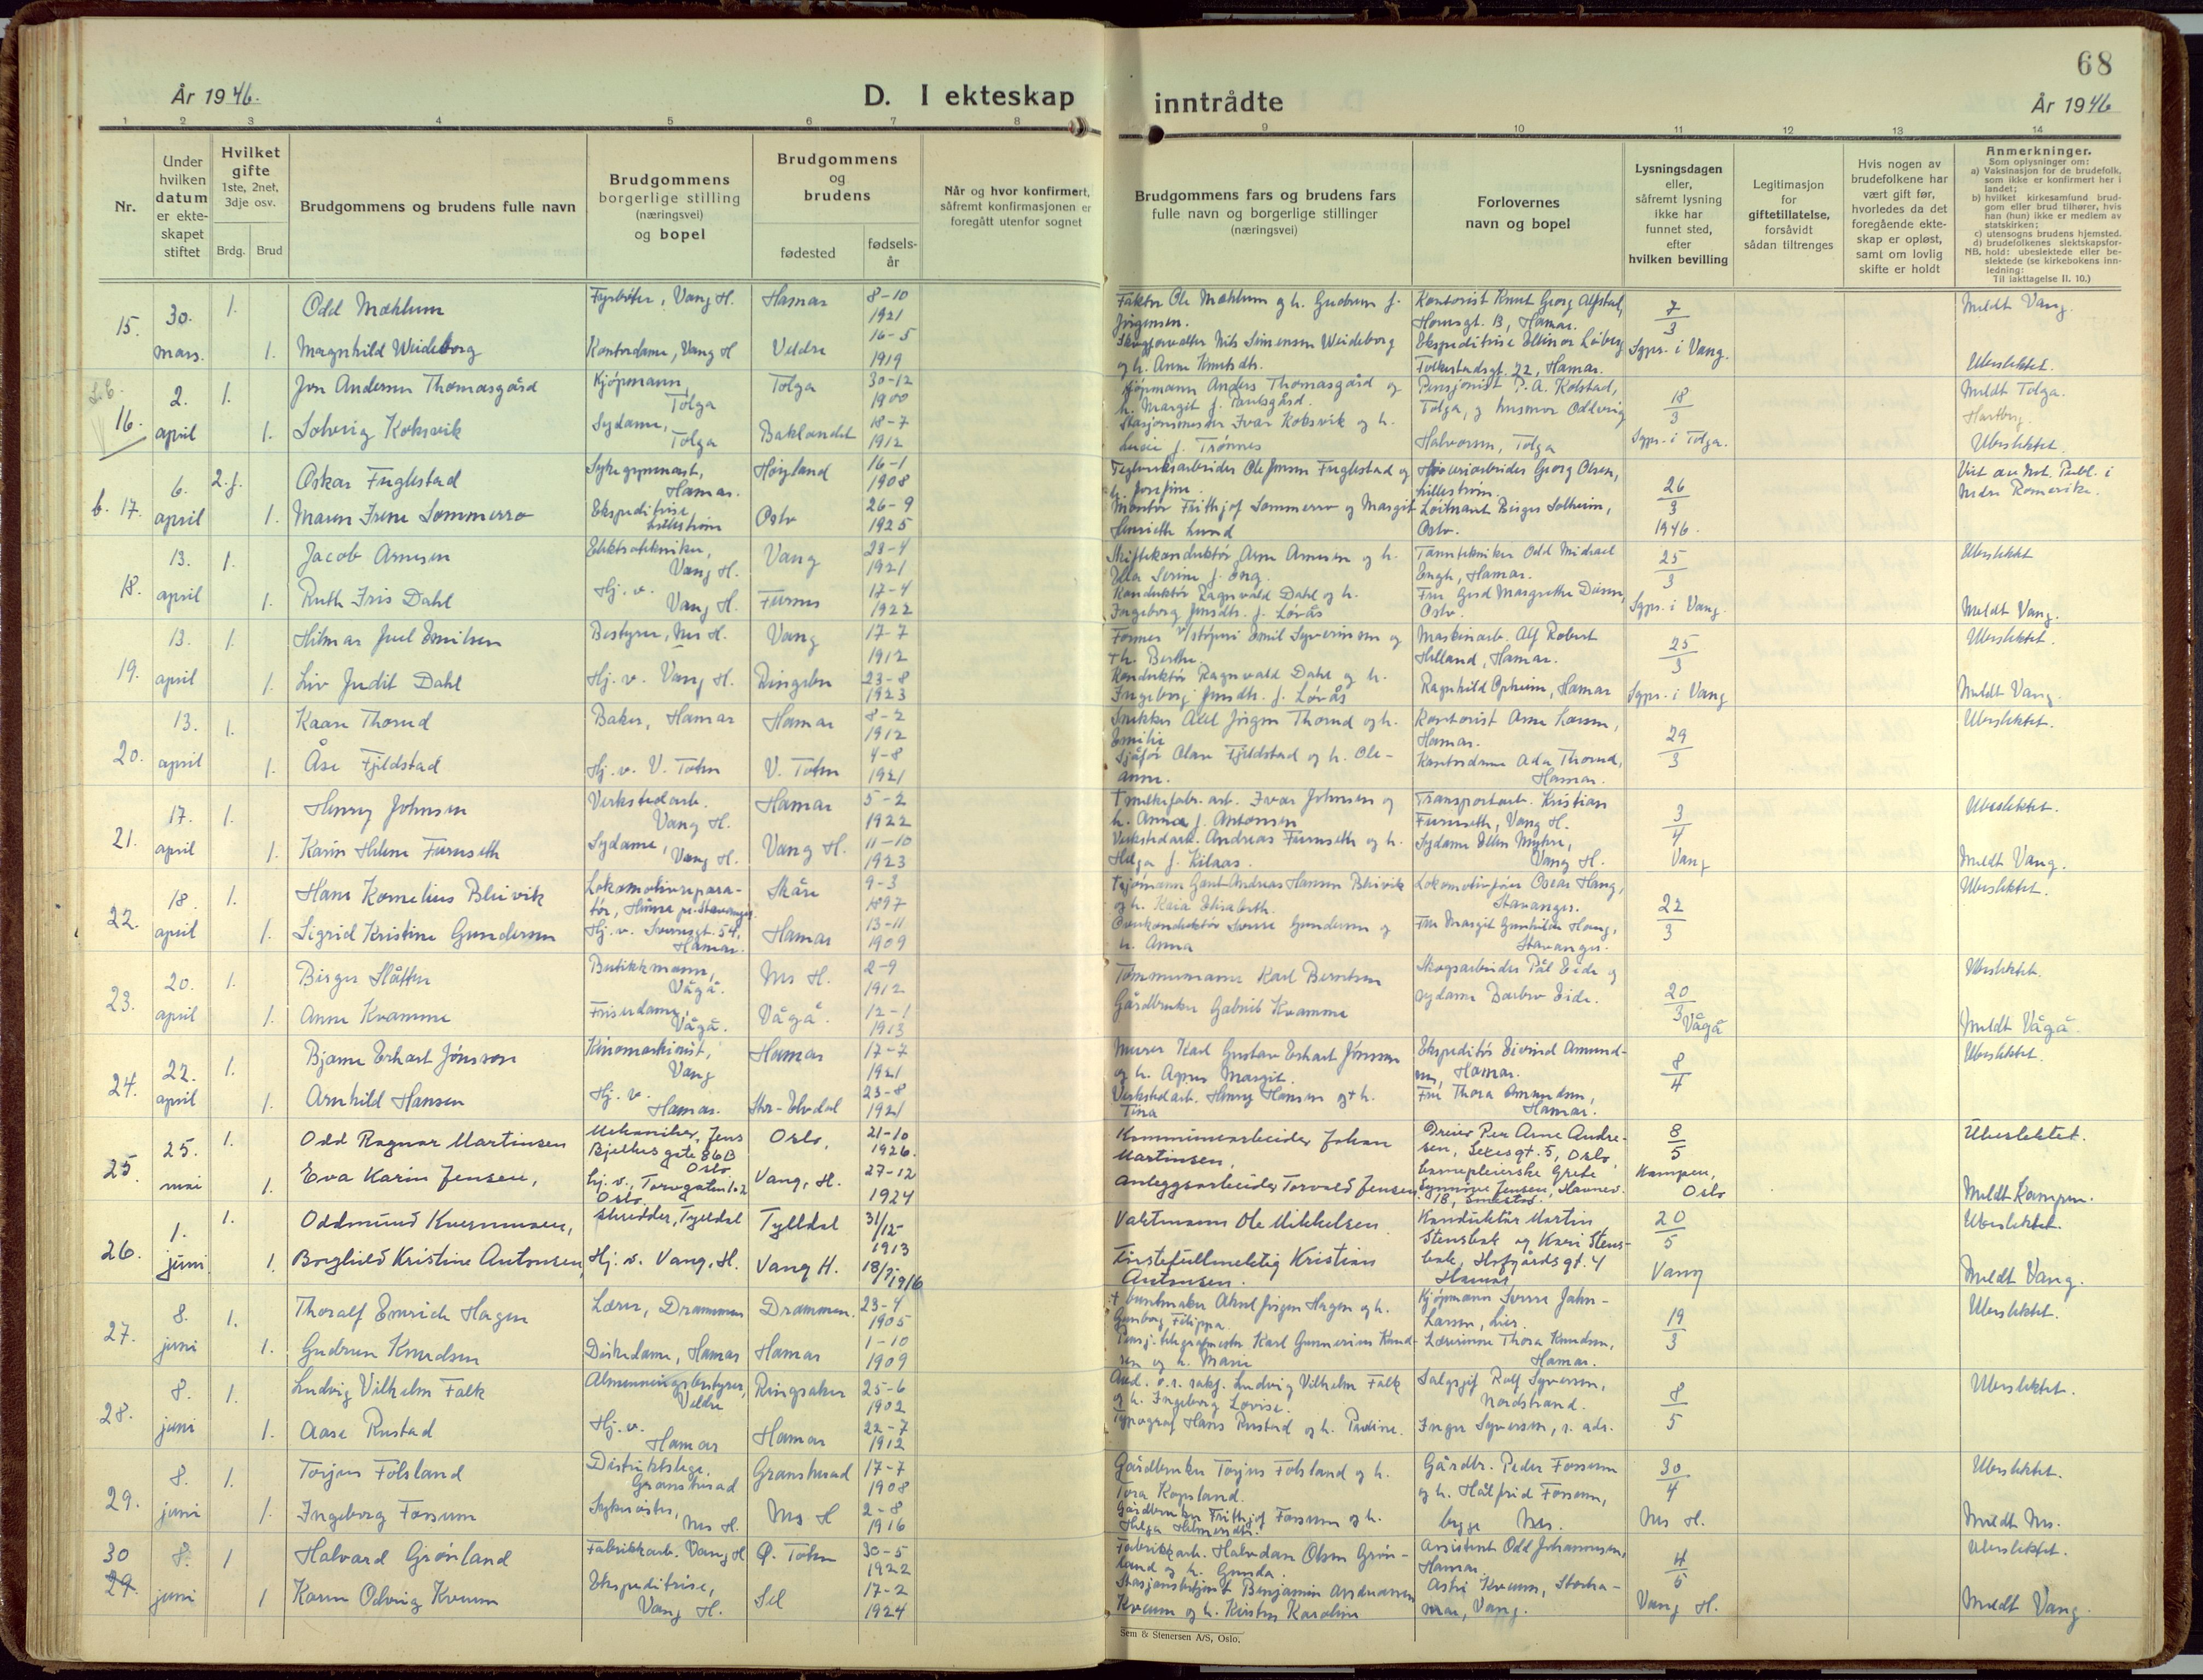 68
År 1946.
D. I ekteskap inntrådte
År 1946
1 2 3 4 5 6 7 8 9 10 11 12 13 14
Nr.
Under hvilken datum er ekteskapet stiftet
Hvilket gifte
1ste, 2net, 3dje osv.
Brdg. Brud
Brudgommens og brudens fulle navn
Brudgommens borgerlige stilling (næringsvei) og bopel
Brudgommens og brudens
fødested
fødselsår
Når og hvor konfirmert, såfremt konfirmasjonen er foregått utenfor sognet
Brudgommens fars og brudens fars fulle navn og borgerlige stillinger (næringsvei)
Forlovernes navn og bopel
Lysningsdagen eller, såfremt lysning ikke har funnet sted, efter hvilken bevilling
Legitimasjon for giftetillatelse, forsåvidt sådan tiltrenges
Hvis nogen av brudefolkene har vært gift før, hvorledes da det foregående ekteskap er opløst, samt om lovlig skifte er holdt
Anmerkninger.
Som oplysninger om:
a) Vaksinasjon for de brudefolk, som ikke er konfirmert her i landet;
b) hvilket kirkesamfund brudgom eller brud tilhører, hvis han (hun) ikke er medlem av statskirken;
c) utensogns brudens hjemsted.
d) brudefolkenes slektskapsforhold: ubeslektede eller beslektede (se kirkebokens innledning:
NB. Til iakttagelse II. 10.)
15. 30. mars. 1. Odd Mæhlum Fyrbøter, Vang H. Hamar 8-10 1921
1. Magnhild Weideborg Kontordame, Vang H Veldre 16-5 1919
Faktor Ole Mæhlum og h. Gudrun f. Jørgensen.
h. Anne Knutsdtr.
Kontorist Knut Georg Alfstad, Hamar.
Folkestadsgt. 22, Hamar.
7/3 Sgpr. i Vang.
Meldt Vang.
Ubeslektet.
16. 2. april 1. Jon Andersen Thomasgård Kjøpmann, Tolga Tolga 30-12 1900
1. Solveig Koksvik Sydame, Tolga Baklandet 18-7 1912
Kjøpmann Anders Thomasgård og h. Margit
Stasjonsmester Ivar Koksvik og h.
Pensjonist P. A. Kolstad, Tolga, og husmor Oddveig Halvorsen, Tolga
18/3 Sgpr. i Tolga.
Meldt Tolga.
Ubeslektet.
b. 17. 6. april 2. f. Oskar Fuglestad Sykegymnast, Hamar. Høyland 16-1 1908
1. Maren Irene Sommerro Ekspeditrise, Lillestrøm Oslo 26-9 1925
Teglverksarbeider Ole Jonsen Fuglestad og h. Josefine.
Montør Frithjof Sommerro og Margit Henriette Lund
Georg Olsen, Lillestrøm.
Løitnant Birger Solheim, Oslo.
26/3 1946.
18. 13. april 1. Jacob Arnesen Elektrotekniker, Vang H. Vang 23-4 1921
1. Ruth Iris Dahl Hj. v. Vang H. Furnes 17-4 1922
Skiftekonduktør Arne Arnesen og h. Ella Serine f. Eng.
Konduktør Ragnvald Dahl og h. Ingeborg Jensdtr. f. Løvås
Tanntekniker Odd Michael Engh, Hamar.
Fru Gerd Margrethe Oslo.
25/3 Sgpr. i Vang.
Ubeslektet
Meldt Vang.
19. 13. april 1. Hilmar Juel Emilsen Bestyrer, Nes H. Vang 17-7 1912
1. Liv Judit Dahl Hj. v. Vang H. Ringebu 23-8 1923
Former v/støperi Emil Syverinsen og †h. Berthe.
Konduktør Ragnvald Dahl og h. Ingeborg Jensdtr. f. Løvås
Maskinarb. Alf Robert Helland, Hamar.
Ragnhild Opheim, Hamar
25/3 Sgpr. i Vang
Ubeslektet.
Meldt Vang.
20. 13. april 1. Kaare Thorud Baker, Hamar Hamar 8-2 1912
1. Åse Fjeldstad Hj. v. V. Toten V. Toten 4-8 1921
Snekker Axel Jørgen Thorud og h. Emilie
Sjåfør Olav Fjeldstad og h. Oleanne.
Kontorist Arne Larsen, Hamar.
Kontordame Ada Thorud, Hamar.
29/3
Ubeslektet.
21. 17. april 1. Henry Johnsen Verkstedarb. Vang H. Hamar 5-2 1922
1. Karin Helene Furuseth Sydame, Vang H. Vang H. 11-10 1923
† melkefabr. arb. Ivar Johnsen og h. Anna f. Antonsen
Verkstedarb. Andreas Furuseth og h. Helga f. Kilaas.
Transportarb. Kristian Furuseth, Vang H.
Sydame Ellen Myhre, Vang H.
3/4 Vang
Ubeslektet.
Meldt Vang.
22. 18. april 1. Hans Kornelius Bleivik Lokomotivreparatør, Hinna pr. Stavanger. Skåre 9-3 1897
1. Sigrid Kristine Gundersen Hj. v. Sverresgt. 54, Hamar. Hamar 13-11 1909
Andreas Hansen Bleivik og h. Kaia Elisabeth.
Overkonduktør Sverre Gundersen og h. Anna
Lokomotivfører Oscar Haug, Stavanger.
Fru Margit Gunhilde Haug, Stavanger.
22/3
Ubeslektet.
23. 20. april 1. Birger Slåtten Butikkmann, Vågå. Nes H. 2-9 1912
1. Anne Kvamme Friserdame, Vågå. Vågå. 12-1 1913
Tømmermann Karl Berntsen
Gårdbruker Gabriel Kvamme
Skogsarbeider Pål Eide og sydame Barbro Eide.
20/3 Vågå
Ubeslektet.
Meldt Vågå.
24. 22. april 1. Bjarne Erhart Jónsson Kinomaskinist, Vang Hamar 17-7 1921
1. Arnhild Hansen Hj. v. Hamar. Stor-Elvdal 23-8 1921
Murer Karl Gustav Erhart Jónsson og h. Agnes Margit.
Verkstedarb. Henry Hansen og †h. Tina
Ekspeditør Eivind Amundsen, Hamar.
Fru Thora Amundsen, Hamar.
8/4
Ubeslektet.
25 25. mai 1. Odd Ragnar Martinsen Mekaniker, Jens Bjelkes gate 86B Oslo Oslo, 21-10 1926.
1. Eva Karin Jensen, Hj. v., Torvgaten 102 Oslo Vang, H. 27-12 1924
Kommunearbeider Johan Martinsen,
Anleggsarbeider Torvald Jensen
Dreier Per Arne Andresen, Oslo,
Barnepleierske Grete Synnøve Jensen,
8/5 Kampen, Oslo
Ubeslektet.
Meldt Kampen.
26. 1. juni 1. Oddmund Kvernmoen, Skredder, Tylldal Tylldal 31/12- 1913
1. Borghild Kristine Antonsen, Hj. v. Vang, H. Vang H. 18/7 1916
Vaktmann Ole Mikkelsen
Førstefullmektig Kristian Antonsen.
Konduktør Martin Stensbak og Kari Stensbak, Hofgårdsgt. 4 Hamar
20/5 Vang
Ubeslektet.
Meldt Vang.
27. 8. juni 1. Thoralf Emrich Hagen Lærer, Drammen Drammen. 23-4 1905
1. Gudrun Knudsen Diskedame, Hamar Hamar 1-10 1909
† buntmaker Aksel Jørgen Hagen og h. Gunborg Filippa.
Pensj. telegrafmester Karl Gunnerius Knudsen og h. Marie
Kjøpmann Sverre Jahn-Larsen, Lier.
Lærerinne Thora Knudsen, Hamar.
19/3
Ubeslektet.
28. 8. juni 1. Ludvig Vilhelm Falk Almenningsbestyrer, Veldre Ringsaker 25-6 1902
1. Aase Rustad Hj. v. Hamar Hamar 22-7 1912
o.r. sakf. Ludvig Vilhelm Falk og h. Ingeborg Lovise.
Typograf Hans Rustad og h. Pauline.
Salgssjef Rolf Syversen, Nordstrand.
Inger Syversen, s. adr.
8/5
Ubeslektet.
29. 8. juni 1. Torjus Følsland Distriktslege, Gransherad Gransherad 17-7 1908
1. Ingeborg Fossum Sykesøster, Nes H. Nes H 2-8 1916
Gårdbruker Torjus Følsland og h. Tora Kopsland.
Gårdbruker Frithjof Fossum og h. Helga Helmersdtr.
Gårdbr. Peder Fossum og h. Hålfrid Fossum, begge Nes.
30/4 Nes H.
Ubeslektet.
Meldt Nes.
30 29. 8. juni 1 Halvard Grønland Fabrikkarb. Vang H Ø. Toten 30-5 1922
1 Karen Odveig Kveum Ekspeditrise, Vang H. Sel 17-2 1924
Fabrikkarb. Halvdan Olsen Grønland og h. Gunda.
Stasjonsbetjent Benjamin Andreassen Kveum og h. Kirsten Karoline
Assistent Odd Johannesen, Hamar.
Astri Kveum, Storhamar, Vang.
4/5 Vang H.
Ubeslektet.
Meldt Vang.
Sem & Stenersen A/S, Oslo.